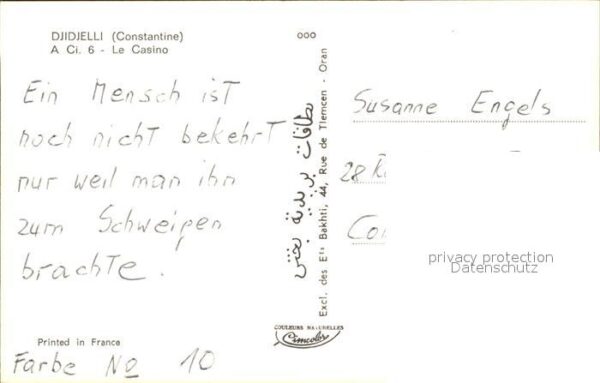 DJIDJELLI (Constantine)
A Ci. 6 - Le Casino
Ein Mensch ist
noch nicht bekehrt
nur weil man ihn
zum Schweigen
brachte.
Printed in France
Farbe No 10
000
بطاقات بريدية بختي
Excl. des Ets Bakhti, 44, Rue de Tlemcen - Oran
COULEURS NATURELLES
Cimcolor
Susanne Engels
28
privacy protection
Datenschutz